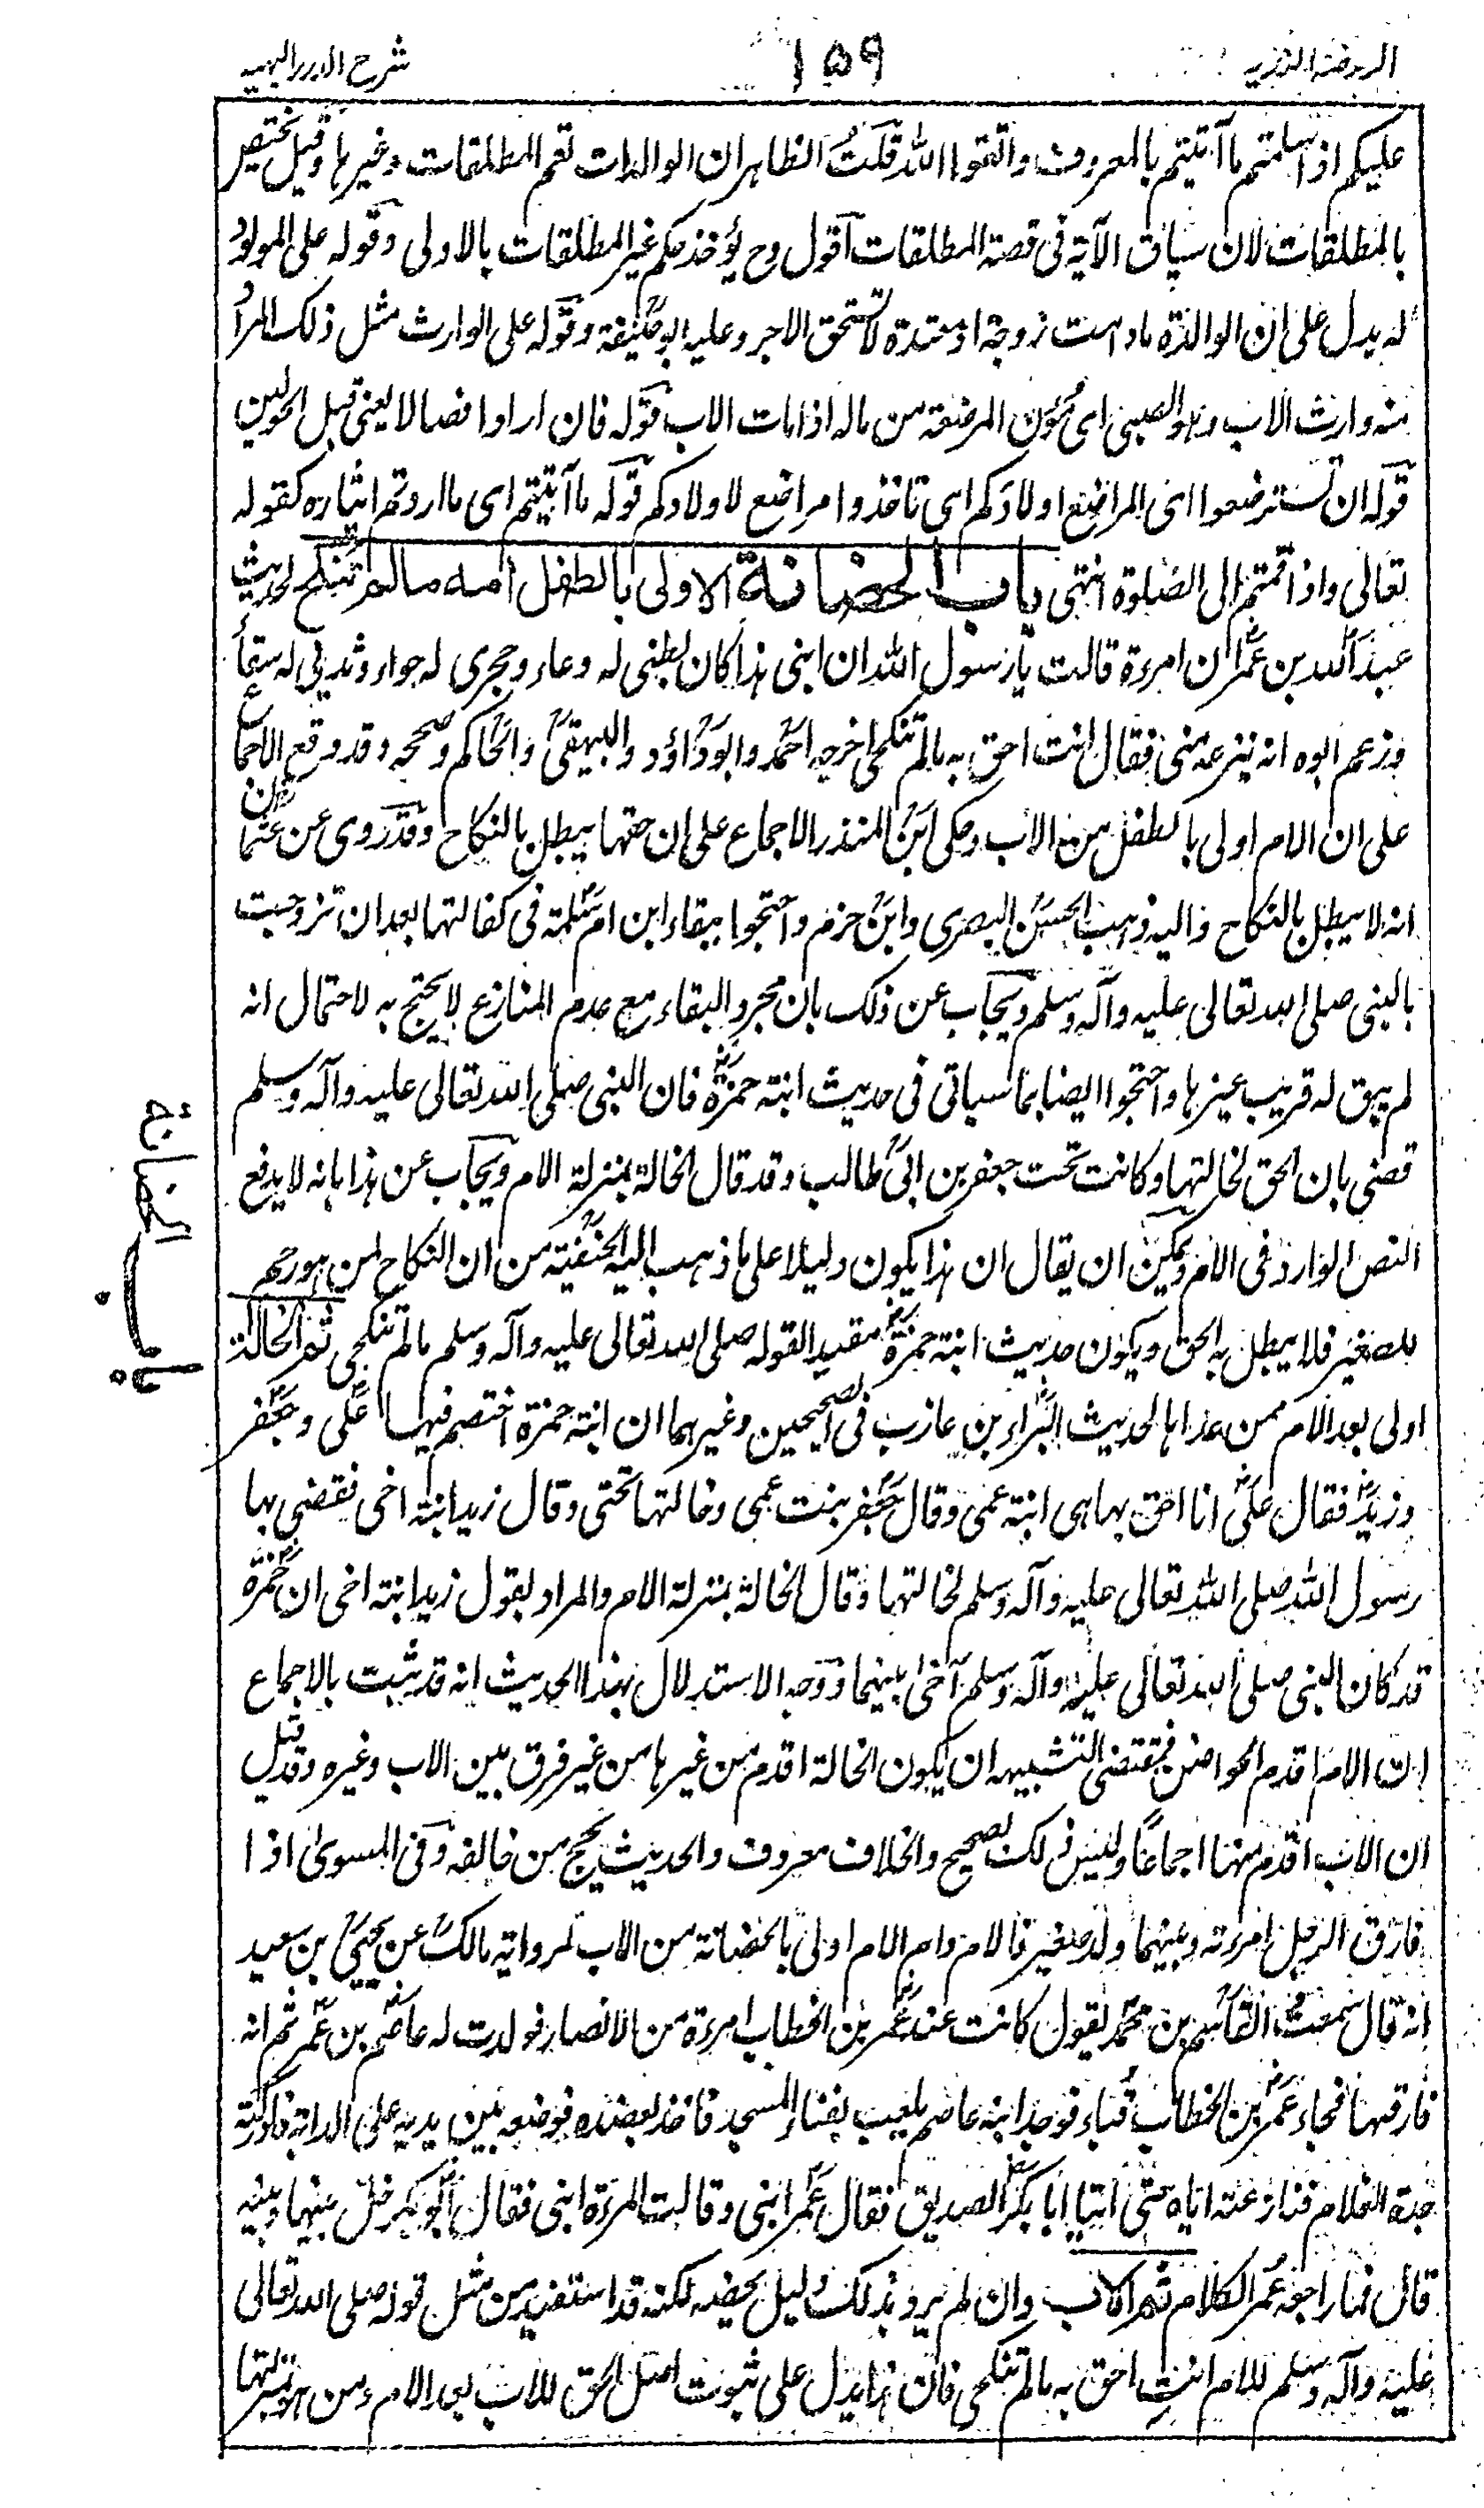 الروضة الندية
١٥٩
شرح الدرر البهية
عليكم اذا سلمتم ما آتيتم بالمعروف واتقوا الله قلت الظاهر ان الوالدات تعم المطلقات وغيرها وقيل يختص
بالمطلقات لان سياق الآية فى قصة المطلقات اقول وح يؤخذ حكم غير المطلقات بالاولى وقوله على المولود
له يدل على ان الوالدة ما دامت زوجة او معتدة لا تستحق الاجر وعليه ابو حنيفة وقوله على الوارث مثل ذلك المراد
منه وارث الاب وهو الصبى اى مؤن المرضعة من ماله اذا مات الاب قوله فان ارادا فصالا يعنى قبل الحولين
قوله ان تسترضعوا اى المراضع اولادكم اى تاخذوا مراضع لاولادكم قوله ما آتيتم اى ما اردتم ايتاره كقوله
تعالى واذا قمتم الى الصلوة انتهى باب الحضانة الاولى بالطفل امه مالم تنكح لحديث
عبد الله بن عمر ان امرءة قالت يا رسول الله ان ابنى هذا كان بطنى له وعاء وحجرى له حواء وثديى له سقاء
وزعم ابوه انه ينزعه منى فقال انت احق به مالم تنكحى اخرجه احمد وابو داؤد والبيهقى والحاكم وصححه وقد وقع الاجماع
على ان الام اولى بالطفل من الاب وحكى ابن المنذر الاجماع على ان حقها يبطل بالنكاح وقد روى عن عثمان
انه لا يبطل بالنكاح واليه ذهب الحسن البصرى وابن حزم واحتجوا ببقاء ابن ام سلمة فى كفالتها بعد ان تزوجت
بالنبى صلى الله تعالى عليه وآله وسلم ويجاب عن ذلك بان مجرد البقاء مع عدم المنازع لا يحتج به لاحتمال انه
لم يبق له قريب غيرها واحتجوا ايضا بما سياتى فى حديث ابنة حمزة فان النبى صلى الله تعالى عليه وآله وسلم
قضى بان الحق لخالتها وكانت تحت جعفر بن ابى طالب وقد قال الخالة بمنزلة الام ويجاب عن هذا بانه لا يدفع
النص الوارد فى الام ويمكن ان يقال ان هذا يكون دليلا على ما ذهب اليه الحنفية من ان النكاح لمن هو رحم
للصغير فلا يبطل به الحق ويكون حديث ابنة حمزة مقيدا لقوله صلى الله تعالى عليه وآله وسلم مالم تنكحى ثم الخالة
اولى بعد الام ممن عداها لحديث البراء بن عازب فى الصحيحين وغيرهما ان ابنة حمزة اختصم فيها على وجعفر
وزيد فقال على انا احق بها هى ابنة عمى وقال جعفر بنت عمى وخالتها تحتى وقال زيد ابنة اخى فقضى بها
رسول الله صلى الله تعالى عليه وآله وسلم لخالتها وقال الخالة بمنزلة الام والمراد بقول زيد ابنة اخى ان حمزة
قد كان النبى صلى الله تعالى عليه وآله وسلم آخى بينهما ووجه الاستدلال بهذا الحديث انه قد ثبت بالاجماع
ان الام اقدم الحواضن فمقتضى التشبيه ان يكون الخالة اقدم من غيرها من غير فرق بين الاب وغيره وقد قيل
ان الاب اقدم منها اجماعا وليس ذلك بصحيح والخلاف معروف والحديث يحج من خالفه وفى المسوى اذا
فارق الرجل امرءته وبينهما ولد صغير فالام وام الام اولى بالحضانة من الاب لرواية مالك عن يحيى بن سعيد
انه قال سمعت القاسم بن محمد يقول كانت عند عمر بن الخطاب امرءة من الانصار فولدت له عاصم بن عمر ثم انه
فارقها فجاء عمر بن الخطاب قباء فوجد ابنه عاصم يلعب بفناء المسجد فاخذ بعضده فوضعه بين يديه على الدابة فادركته
جدة الغلام فنازعته اياه حتى اتيا ابا بكر الصديق فقال عمر ابنى وقالت المرءة ابنى فقال ابو بكر خل بينها وبينه
قال فما راجعه عمر الكلام ثم الاب وان لم يرد بذلك دليل يخصه لكنه قد استفيد من مثل قوله صلى الله تعالى
عليه وآله وسلم للام انت احق به مالم تنكحى فان هذا يدل على ثبوت اصل الحق للاب بعد الام ومن هو بمنزلتها
باب الحضانة